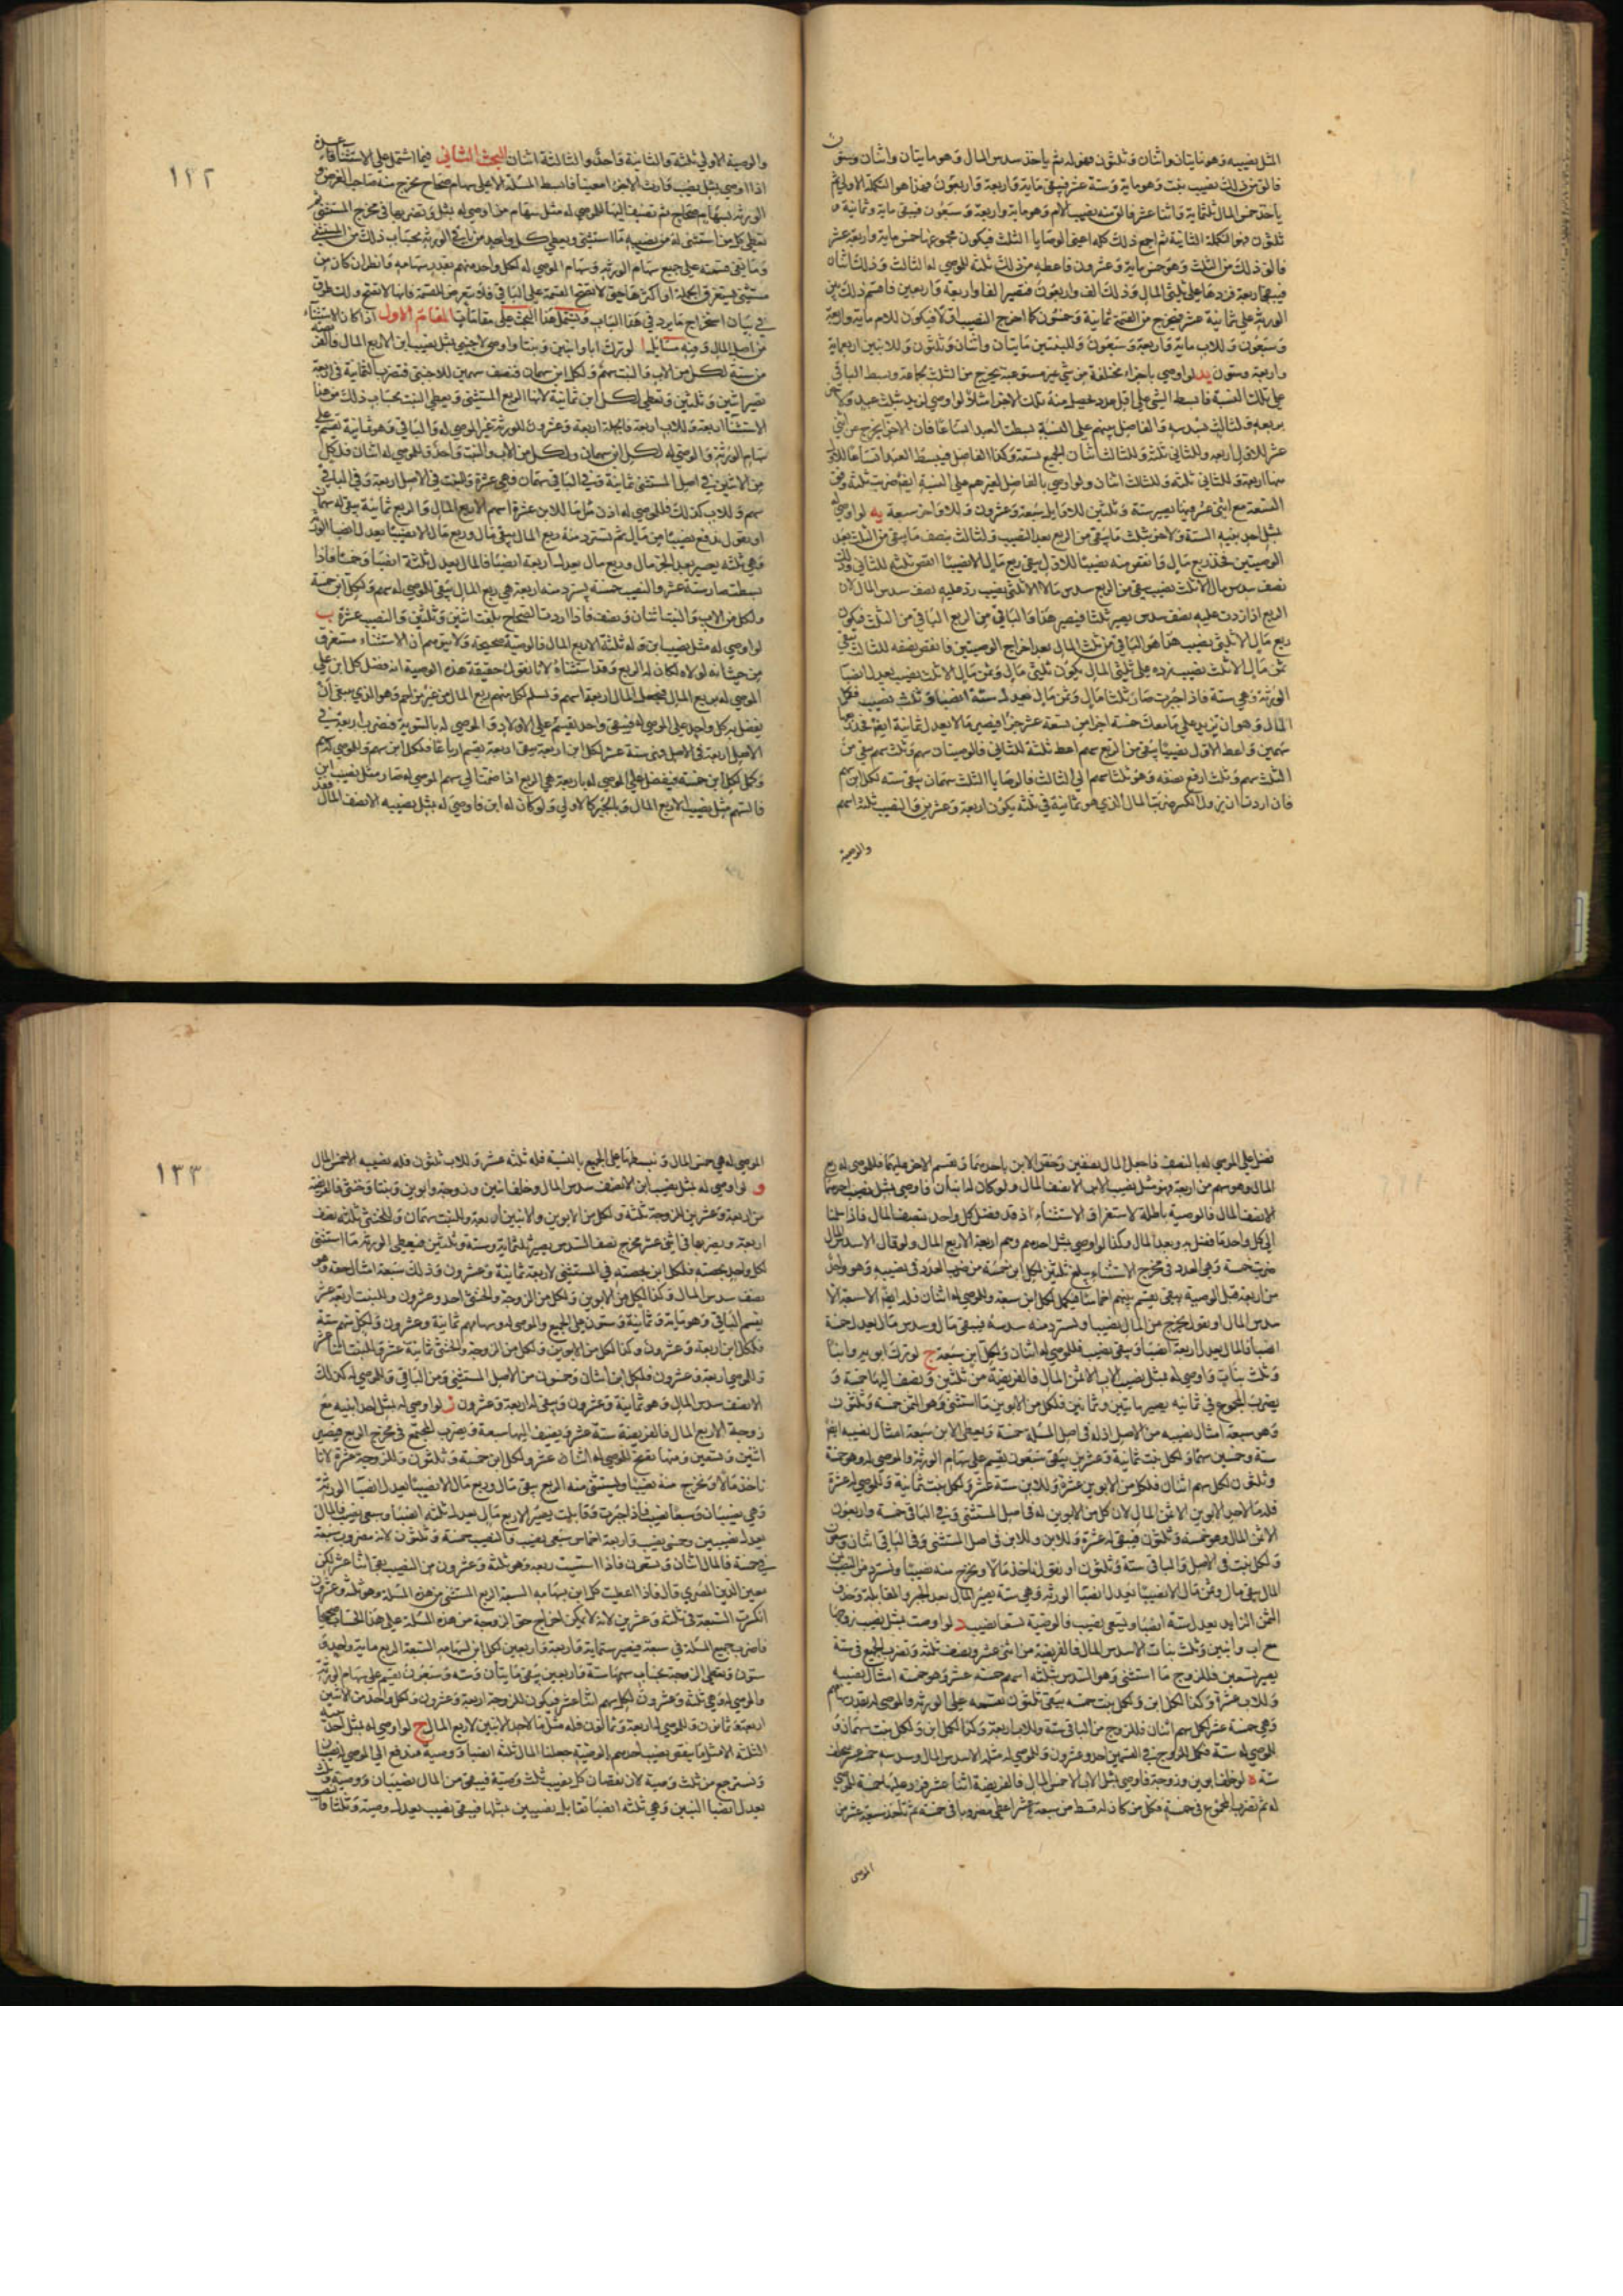 المثل بنصيبه وهو مايتان واثنان وثلثون فهو له ثم ياخذ سدس المال وهو مايتان واثنان
فالق من ذلك نصيب بنت وهو ماية وستة عشر فيبقى ماية واربعة واربعون فهذا هو التكملة الاولى ثم
ياخذ خمس المال ثلثماية واثنا عشر فالق منه نصيب الام وهو ماية واربعة وسبعون فيبقى ماية وثمانية و
ثلثون فهو التكملة الثانية ثم اجمع ذلك كله اعنى الوصايا الثلث فيكون مجموعها خمس ماية واربعة عشر
فالق ذلك من الثلث وهو خمس ماية وعشرون فاعطه من ذلك ثلثه للموصي له الثالث وذلك اثنان
فيبقى اربعة فزدها على ثلثى المال وذلك الف واربعون فتصير الفا واربعة واربعين فاقسم ذلك بين
الورثة على ثمانية عشر فيخرج من القسمة ثمانية وخمسون كما اخرج النصيب اولا فيكون للام ماية واربعة
وسبعون وللاب ماية واربعة وسبعون وللبنتين مايتان واثنان وثلثون وللابنين اربعماية
واربعة وستون يد لو اوصي باجزاء مختلفة من شي غير مستوعبة يخرج من الثلث لجماعة وبسط الباقي
على تلك النسبة فابسط الشي على اقل عدد يحصل منه تلك الاجزا مثلا لو اوصي لزيد بثلث عبد ولاخر
بربعه ولثالث بسدسه والفاضل بينهم على النسبة بسطت العبد اتساعا فان الاجزا يخرج من اثني
عشر للاول اربعه وللثاني ثلثة وللثالث اثنان الجميع تسعة وكذا الفاضل فيبسط العبد اتساعا للاول
منها اربعة وللثاني ثلثه وللثالث اثنان ولو اوصي بالفاضل لغيرهم على النسبة ايضا ضربت ثلثة وفق
التسعة مع اثنى عشر فيها تصير ستة وثلثين للاوايل سبعة وعشرون وللاواخر تسعة يه لو اوصي له
بمثل احد بنيه الستة ولاخر بثلث ما يبقى من الربع بعد النصيب ولثالث بنصف ما يبقى من الثلث بعد
الوصيتين فخذ ربع مال وانقص منه نصيبا للاول يبقى ربع مال الا نصيبا انقص ثلثه للثاني وذلك
نصف سدس مال الا ثلث نصيب يبقى من الربع سدس مال الا ثلثى نصيب زد عليه نصف سدس المال لان
الربع اذا زدت عليه نصف سدس يصير ثلثا فيصير هذا والباقي من الربع الباقي من الثلث فيكون
ربع مال الا ثلثى نصيب هذا هو الباقى من ثلث المال بعد اخراج الوصيتين فانقص نصفه للثالث يبقى
ثمن مال الا ثلث نصيب زده على ثلثى المال يكون ثلثى مال وثمن مال الا ثلث نصيب يعدل انصبا
الورثة وهي ستة فاذا جبرت صار ثلثا مال وثمن مال يعدل ستة انصبا وثلث نصيب فكمل
المال وهو ان تزيد على ما معك خمسة اجزا من تسعة عشر جزا فيصير مالا يعدل ثمانية ايضا فخذ ربعها
سهمين واعط الاول نصيبا يبقى من الربع سهم اعط ثلثه للثاني فالوصيتان سهم وثلث سهم يبقى من
الثلث سهم وثلث ارفع نصفه وهو ثلثا سهم الى الثالث فالوصايا الثلث سهمان يبقى سته لكل ابن سهم
فان اردت ان يزول الكسر ضربت المال الذي هو ثمانية في ثلثه يكون اربعة وعشرين والنصيب ثلثة اسهم
والوصية
١٣٢
والوصية الاولى ثلثة والثانية واحد والثالثة اثنان البحث الثاني فيما اشتمل على الاستثناء
اذا اوصي بمثل نصيب وارث الا جزا معينا فابسط المسئلة الاعلى سهام صحاح يخرج منه صاحب الفرض و
الورثة بسهام صحاح ثم تضيف اليها للموصي له مثل سهام من اوصي له بمثله وتضربها في مخرج المستثنى ثم
تعطى كل من استثنى له من نصيبه ما استثنى ويعطى كل واحد من باقي الورثه بحساب ذلك من المستثنى
وما يبقى قسمته على جميع سهام الورثه وسهام الموصي له لكل واحد منهم بقدر سهامه وانظر ان كان من
مستثنى يستغرق الجملة او اكثرها حيث لا تصح القسمة على الباقي فلا تتعرض للقسمة فانها لا تصح ولك طرق
في بيان استخراج ما يرد في هذا الباب ويشتمل هذا البحث على مقامات المقام الاول اذا كان الاستثناء
من اصل المال وفيه مسايل ا لو ترك ابا وابنين وبنتا واوصى لاجنبي بمثل نصيب ابن الا ربع المال فالفريضة
من ستة لكل من الاب والبنت سهم ولكل ابن سهمان فنضيف سهمين للاجنبى فتضرب الثمانية في اربعة
تصير اثنين وثلثين وتعطى لكل ابن ثمانية لانها الربع المستثنى ويعطى البنت بحساب ذلك من هذا
الاستثناء اربعة وللاب اربعة فالجملة اربعة وعشرون للورثة غير الموصي له والباقي وهو ثمانية تقسم على
سهام الورثة والموصي له لكل ابن سهمان ولكل من الاب والبنت واحد وللموصي له اثنان فلكل
من الابنين في اصل المستثنى ثمانية وفي الباقي سهمان فهي عشرة وللبنت في الاصل اربعة وفي الباقي
سهم وللاب كذلك فللموصي له اذن مثل ما للابن عشرة اسهم الا ربع المال والربع ثمانية يبقى له سهمان
او نقول ندفع نصيبا من مال ثم تسترد منه ربع المال يبقى مال وربع مال الا نصيبا يعدل انصبا الورثة
وهي ثلثه يصير بعد الجبر مال وربع مال يعدل اربعة انصبا فالمال يعدل ثلثة انصبا وخمسا فاذا
بسطته صار ستة عشر والنصيب خمسة يسترد منه اربعة هي ربع المال يبقى للموصي له سهم ولكل ابن خمسة
ولكل من الاب والبنت اثنان ونصف فاذا اردت الصحاح بلغت اثنين وثلثين والنصيب عشرة ب
لو اوصي له مثل نصيب ابن وله ثلثة الا ربع المال فالوصية صحيحة ولا يتوهم ان الاستثناء مستغرق
من حيث انه لولاه لكان له الربع وقد استثناه لانا نقول حقيقة هذه الوصية انه فضل كل ابن على
الموصي له بربع المال فيجعل المال اربعة اسهم ويسلم لكل منهم ربع المال من غير مزاحم وهو الذي ينبغى ان
يفضل به كل واحد على الموصي له فيبقى واحد يقسم على الاولاد والموصي له بالسوية فتضرب اربعة في
الاصل اربعة في الاصل وهى ستة عشر لكل ابن اربعة يبقى اربعة يقسم ارباعا فلكل ابن سهم وللموصي له سهم
وكمل لكل ابن خمسة فيفضل على الموصي له باربعة هي الربع اذا ضمت الى سهم الموصي له صار مثل نصيب ابن
فالسهم مثل نصيب الا ربع المال وبالجبر كالاولى ولو كان له ابن واوصى له بمثل نصيبه الا نصف المال فقد
فضل على الموصي له بالنصف فاجعل المال نصفين وتختص الابن باحدهما ويقسم الاخر عليهما فللموصي له ربع
المال وهو سهم من اربعة فهو مثل نصيب الابن الا نصف المال ولو كان له ابنان فاوصى بمثل نصيب احدهما
الا نصف المال فالوصية باطلة لاستغراق الاستثناء اذ قد فضل كل واحد بنصف المال فاذا سلمنا
الى كل واحد ما فضل به وبعد المال وكذا لو اوصي بمثل احدهم وهم اربعة الا ربع المال ولو قال الا سدس المال
ضربت خمسة وهي العدد في مخرج الاستثناء يبلغ ثلثين لكل ابن خمسة من ضرب العدد في نصيبه وهو واحد
من اربعة قبل الوصية يبقى يقسم بينهم اخماسا فيكمل لكل ابن سبعة وللموصي له اثنان فله ايضا السبعة الا
سدس المال او نقول يخرج من المال نصيبا وتسترد منه سدسه فيبقى مال وسدس مال يعدل خمسة
انصبا فالمال يعدل اربعة انصبا ويبقى نصيب فللموصي له اثنان ولكل ابن سبعة ج لو ترك ابوين وابنا
وثلث بنات واوصي له بمثل نصيب الاب الا ثمن المال فالفريضة من ثلثين ونضيف اليها خمسة و
نضرب المجموع في ثمانيه يصير مايتين وثمانين فلكل من الابوين ما استثنى وهو الثمن خمسة وثلثون
وهو سبعة امثال نصيبه من الاصل اذ له في اصل المسئلة خمسة ويعطى الابن سبعة امثال نصيبه ايضا
ستة وخمسين سهما ولكل بنت ثمانية وعشرين يبقى سبعون تقسم على سهام الورثه والموصي له وهو خمسة
وثلثون لكل سهم اثنان فلكل من الابوين عشرة وللابن ستة عشر ولكل بنت ثمانية وللموصي له عشرة
فله ما لاحد الابوين الا ثمن المال لان كل من الابوين له في اصل المستثنى وفي الباقي خمسة واربعون
الا ثمن المال وهو خمسة وثلثون فيبقى له عشرة وللابن وللابن في اصل المستثنى وفي الباقي اثنان وسبعون
ولكل بنت في الاصل والباقي ستة وثلثون او نقول ناخذ مالا ويخرج منه نصيبا ونسترد من النصيب ثمن
المال يبقى مال وثمن مال الا نصيبا يعدل انصبا الورثه وهي ستة يصير المال بعد الجبر والمقابلة وحذف
الثمن الزايد يعدل ستة انصبا وتسعى نصيب فالوصية تسعا نصيب د لو اوصت بمثل نصيب زوجها
مع اب وابنين وثلث بنات الا سدس المال فالفريضة من اثنى عشر ونضيف ثلثة ونضرب الجميع في ستة
يصير تسعين فللزوج ما استثنى وهو السدس بثلثه اسهم خمسة عشر وهو خمسة امثال نصيبه
وللاب عشرا وكذا لكل ابن ولكل بنت خمسه يبقى ثلثون نقسمه على الورثه والموصي له بقدر سهامهم
وهي خمسة عشر لكل سهم اثنان فللزوج من الباقي ستة وللاب اربعة وكذا لكل ابن ولكل بنت سهمان و
للموصي له ستة فكمل للزوج في القسمين احد وعشرون وللموصي له مثله الا سدس المال وسدسه خمسة عشر يتخلف
ستة ه لو خلف ابوين وزوجة فاوصى بمثل الاب الا خمس المال فالفريضة اثنا عشر فزد عليها خمسة للموصي
له ثم تضرب المجموع في خمسة فكل من كان له قسط من سبعة عشر اعطى مضروبا في خمسة ثم تاخذ سبعة عشر من
الموصى
١٣٣
الموصي له هي خمس المال وتبسطها على الجميع بالنسبة فله ثلثه عشر وللاب ثلثون فله نصيبه الا خمس المال
و لو اوصي له بمثل نصيب ابن الا نصف سدس المال وخلف ابنين وزوجة وابوين وبنتا وخنثى فالفريضة
من اربعة وعشرين للزوجة ثلثة ولكل من الابوين والابنين اربعة وللبنت سهمان وللخنثى ثلثه نضيف
اربعة ونضربها في اثنى عشر مخرج نصف السدس يصير ثلثماية وستة وثلثين فيعطى الورثه ما استثنى
لكل واحد بحصته فلكل ابن بحصته في المستثنى لاربعة ثمانية وعشرون وذلك سبعة امثال حقه وهو
نصف سدس المال وكذا لكل من الابوين ولكل من الزوجة والخنثى احد وعشرون وللبنت اربعة عشر
يقسم الباقي وهو ماية وثمانية وستون على الجميع والموصي له وسهامهم ثمانية وعشرون ولكل سهم ستة
فلكل ابن اربعة وعشرون وكذا لكل من الابوين ولكل من الزوجة والخنثى ثمانية عشر وللبنت اثنا عشر
وللموصي اربعة وعشرون فلكل ابن اثنان وخمسون من الاصل المستثنى ومن الباقي وللموصي له كذلك
الا نصف سدس المال وهو ثمانية وعشرون ويبقى له اربعة وعشرون ز لو اوصي له بمثل احد ابنيه مع
زوجة الا ربع المال فالفريضة ستة عشر ونضيف اليها سبعة ونضرب المجتمع في مخرج الربع فيصير
اثنين وتسعين ومنها تصح للموصي له اثنان عشر ولكل ابن خمسة وثلثون وللزوجة عشرة لانا
ناخذ مالا ونخرج منه نصيبا ونستثنى منه الربع يبقى مال وربع مال الا نصيبا يعدل انصبا الورثة
وهي نصيبان وسبعا نصيب فاذا جبرت وقابلت يصير الا ربع مال يعدل ثلثه انصبا وسبعى نصيب فالمال
يعدل نصيبين وخمسى نصيب واربعة اخماس سبعى نصيب والنصيب خمسة وثلثون لانه مضروب سبعة
في خمسة فالمال اثنان وتسعون فاذا استثنيت ربعه وهو ثلثة وعشرون من النصيب بقى اثنا عشر لكن
معين الدين المصري قال فاذا اعطيت كل ابن بسهامه السبعة الربع المستثنى من هذه المسئلة وهو ثلثة وعشرون
انكسرت السبعة في ثلثة وعشرين لانه لا يمكن اخراج حق الزوجة من هذه المسئلة على هذا الحساب صحيحا
فاضرب جميع المسئلة في سبعة فيصير ستماية واربعة واربعين لكل ابن لسهامه السبعة الربع ماية واحد و
ستون وتعطى الزوجة بحساب سهمها ستة واربعين يبقى مايتان وسته وسبعون تقسم على سهام الورثة
والموصي له وهي ثلثة وعشرون لكل سهم اثنا عشر فيكون للزوجة اربعة وعشرون ولكل واحد من الابنين
اربعة وثمانون وللموصي له اربعة وثمانون فله مثل ما لاحد الابنين الا ربع المال ح لو اوصي له بمثل احد بنيه
الثلثة الا مثل ما ينقص نصيب احدهم بالوصية جعلنا المال ثلثة انصبا ووصية فندفع الى الموصي له نصيبا
ونسترجع من ثلث وصية لان نقصان كل نصيب ثلث وصية فيبقى من المال نصيبان ووصية وثلث
يعدل انصبا البنين وهي ثلثه انصبا تقابل نصيبين بمثلها فيبقى نصيب يعدل وصية وثلثا فالنصيب